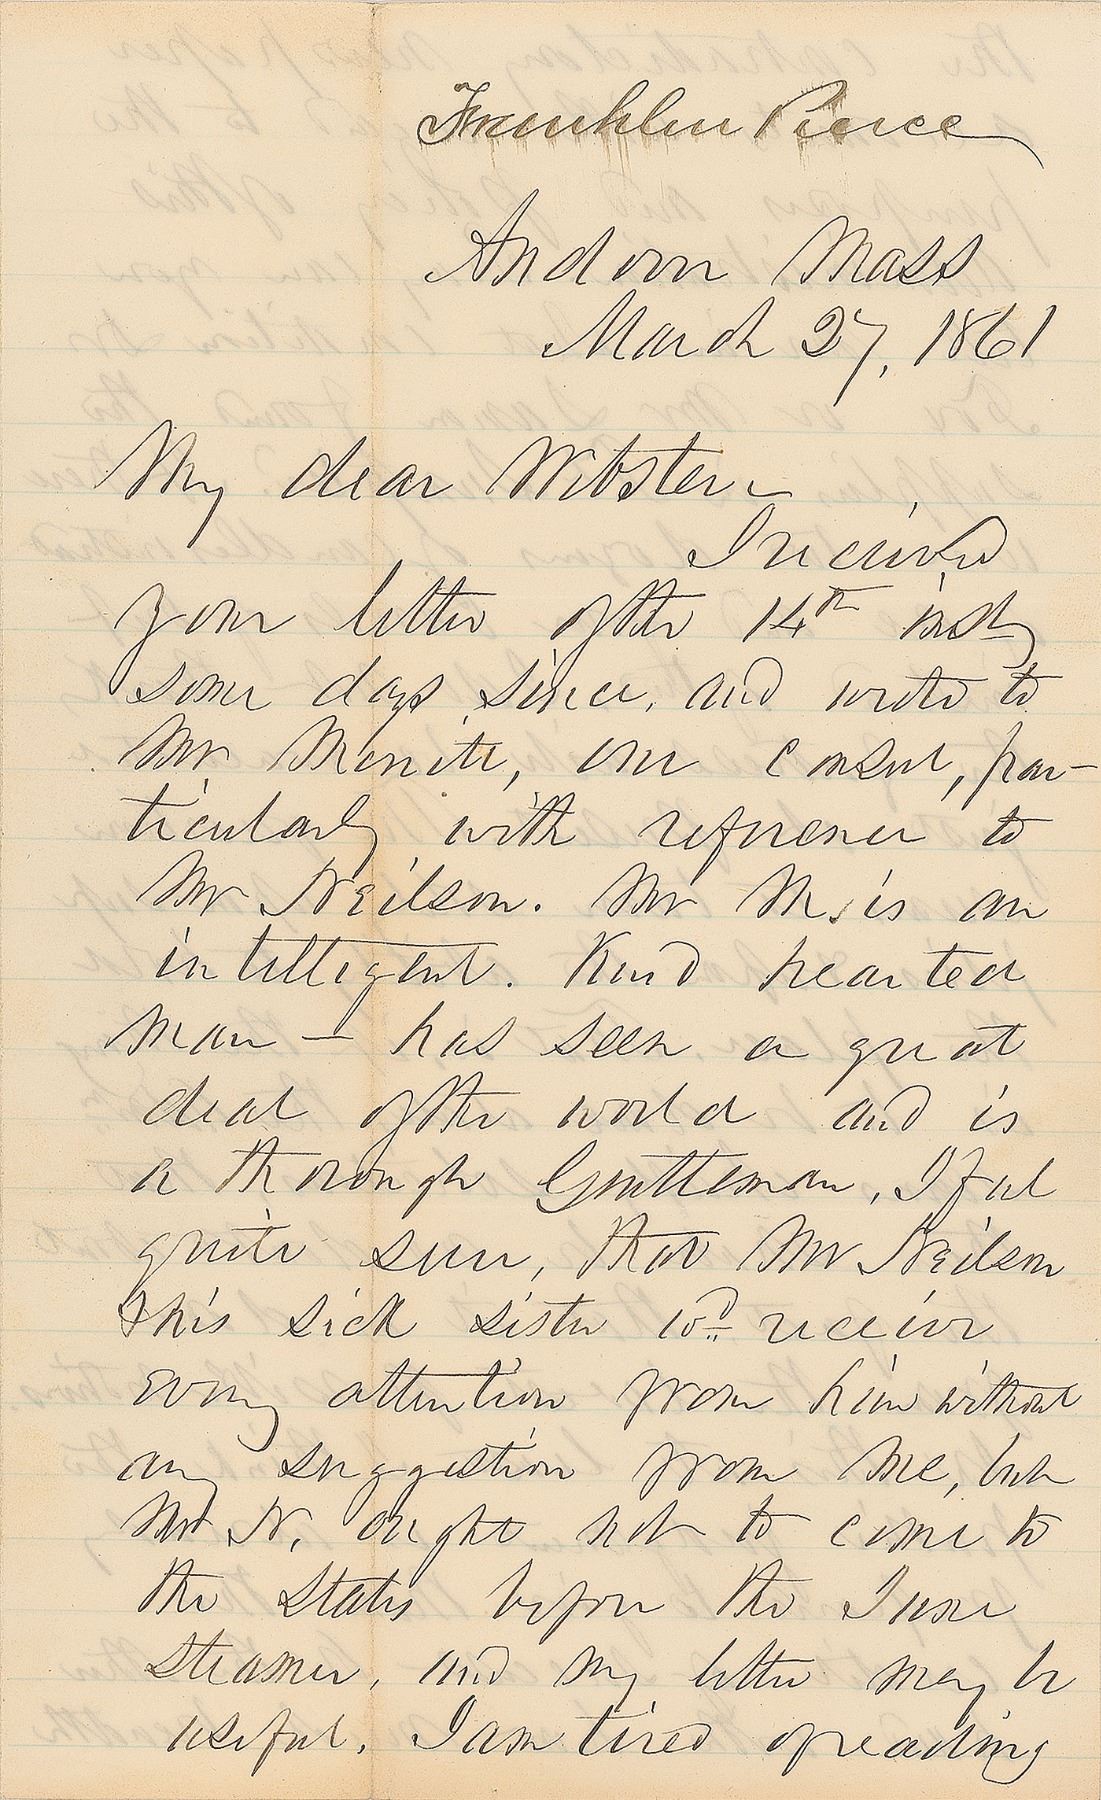 Franklin Pierce
Andover Mass
March 27, 1861
My dear Webster –
I received
your letter of the 14th inst,
some days since, and wrote to
Mr. Merrite, our consul, par-
ticularly with reference to
Mr Neilson. Mr M. is an
intelligent. Kind hearted
man — has seen a great
deal of the world and is
a thorough Gentleman, I feel
quite sure, that Mr Neilson
& his sick sister wd receive
every attention from him without
any suggestion from me, but
Mr N. ought not to come to
the States before the June
steamer, and my letter may be
useful. I am tired of reading